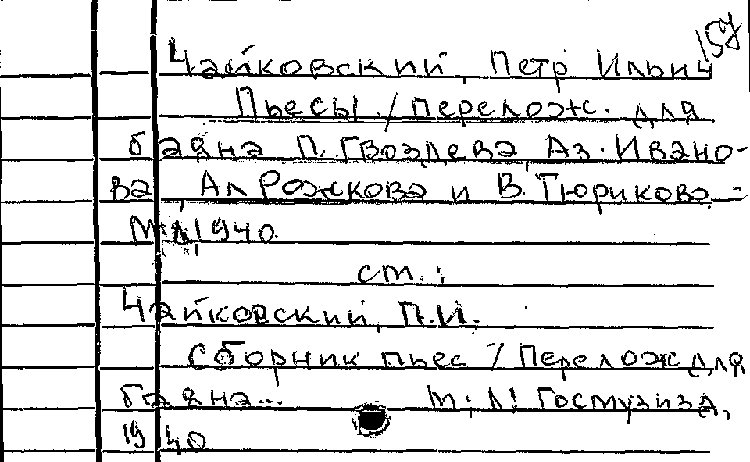 157
Чайковский, Петр Ильич
Пьесы / перелож. для
баяна П. Гвоздева, Аз. Ивано-
ва, Ал Рожкова и В. Тюрикова. -
М; Л, 1940.
см.:
Чайковский, П.И.
Сборник пьес / Перелож для
баяна... М; Л: Госмузизд,
1940